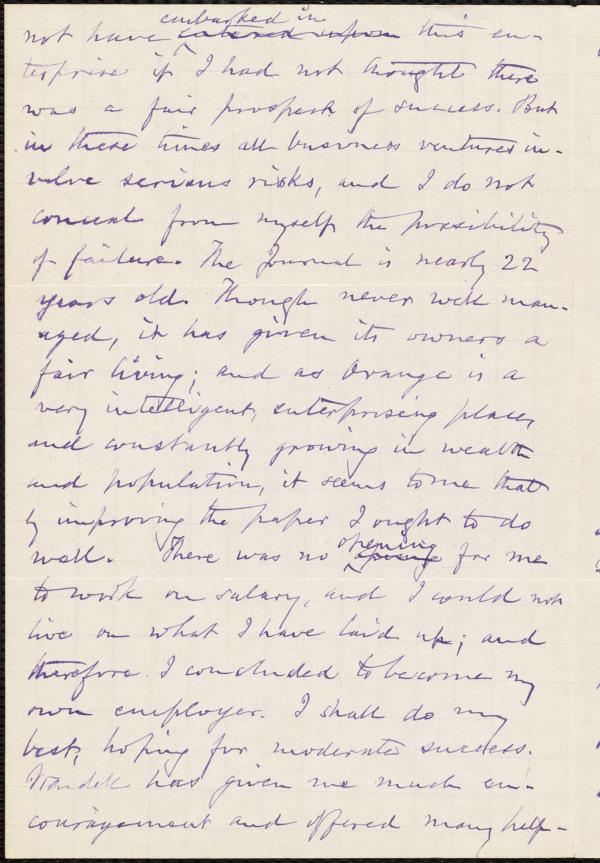 embarked in
not have entered upon this en-
terprise if I had not thought there
was a fair prospect of success. But
in these times all business ventures in-
volve serious risks, and I do not
conceal from myself the possibility
of failure. The Journal is nearly 22
years old. Though never well man-
aged, it has given its owners a
fair living; and as Orange is a
very intelligent, enterprising place,
and constantly growing in wealth
and population, it seems to me that
by improving the paper I ought to do
well. There was no opening for me
to work on salary, and I could not
live on what I have laid up; and
therefore I concluded to become my
own employer. I shall do my
best, hoping for moderate success.
Wardell has given me much en-
couragement and offered many help-